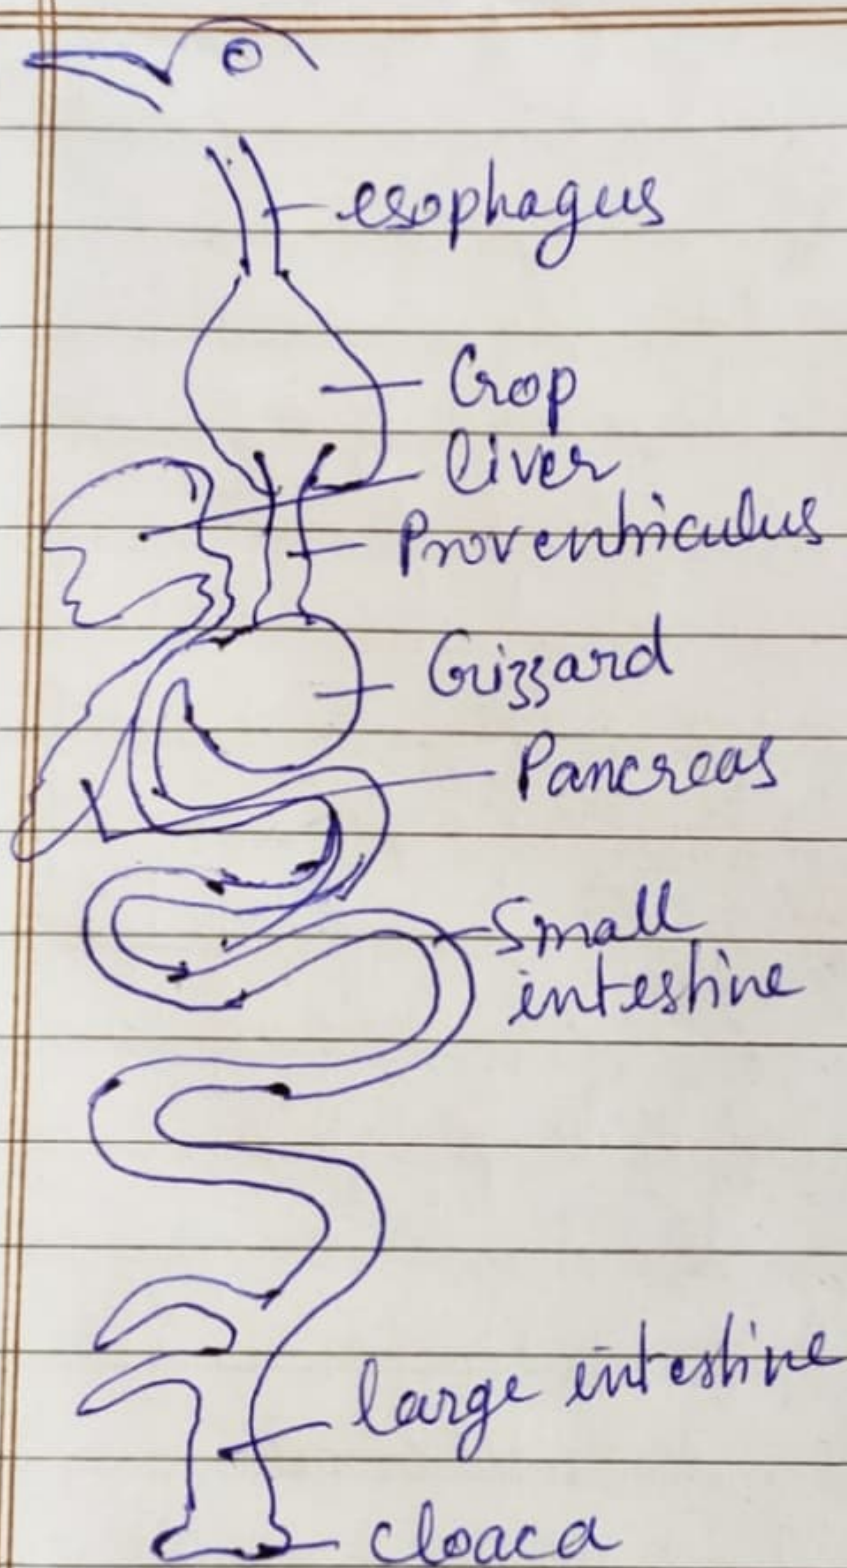 esophagus
Crop
liver
Proventriculus
Gizzard
Pancreas
Small
intestine
large intestine
cloaca